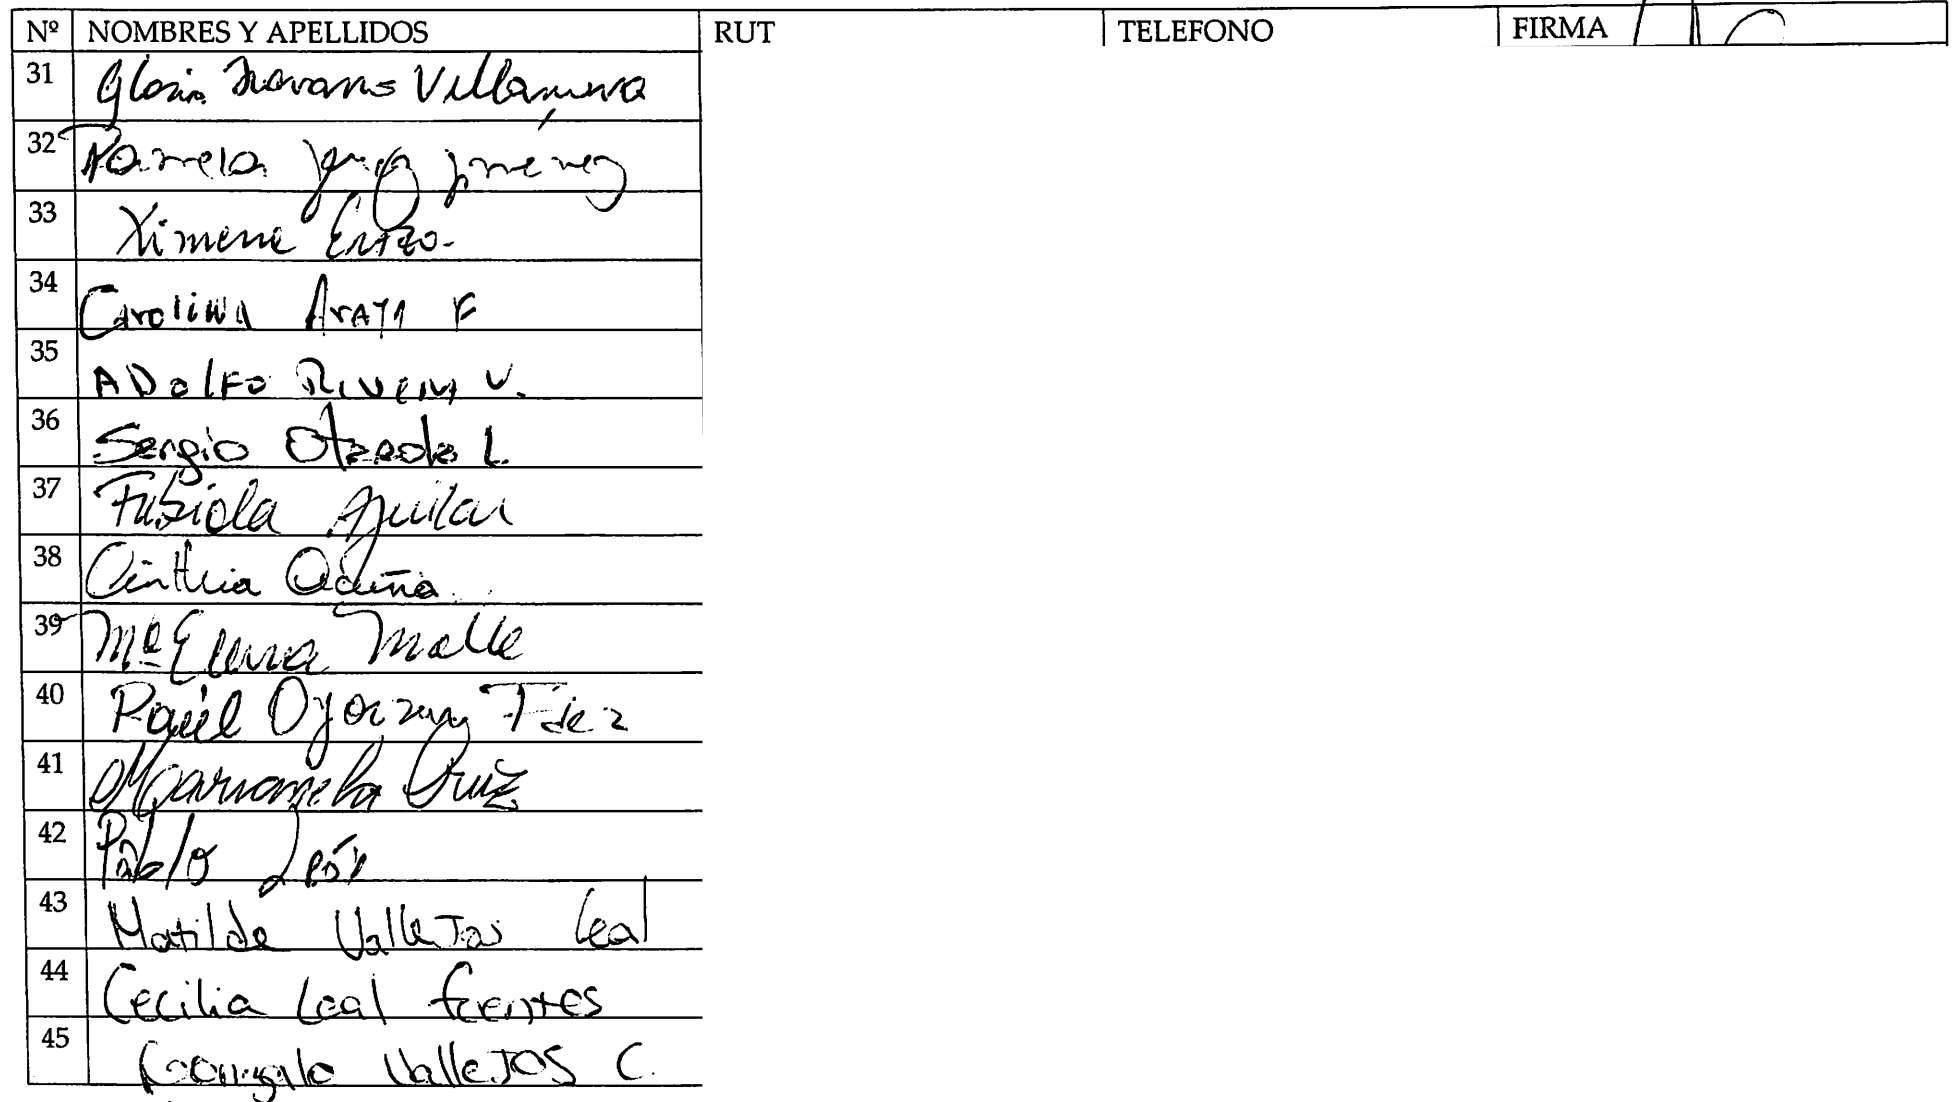 Nº NOMBRES Y APELLIDOS RUT TELEFONO FIRMA
31 Gloria Navarro Villanueva
32 Pamela Jiménez
33 Ximena Erazo.
34 Carolina Araya F
35 ADolFo Rivera V.
36 Sergio Otarola L.
37 Fabiola Aguilar
38 Cinthia Acuña
39 Mª Elena Malle
40 Raúl Oyarzun
41 Marianela Cruz
42 Pablo León
43 Matilde Vallejos Leal
44 Cecilia Leal Fuentes
45 Gonzalo Vallejos C.